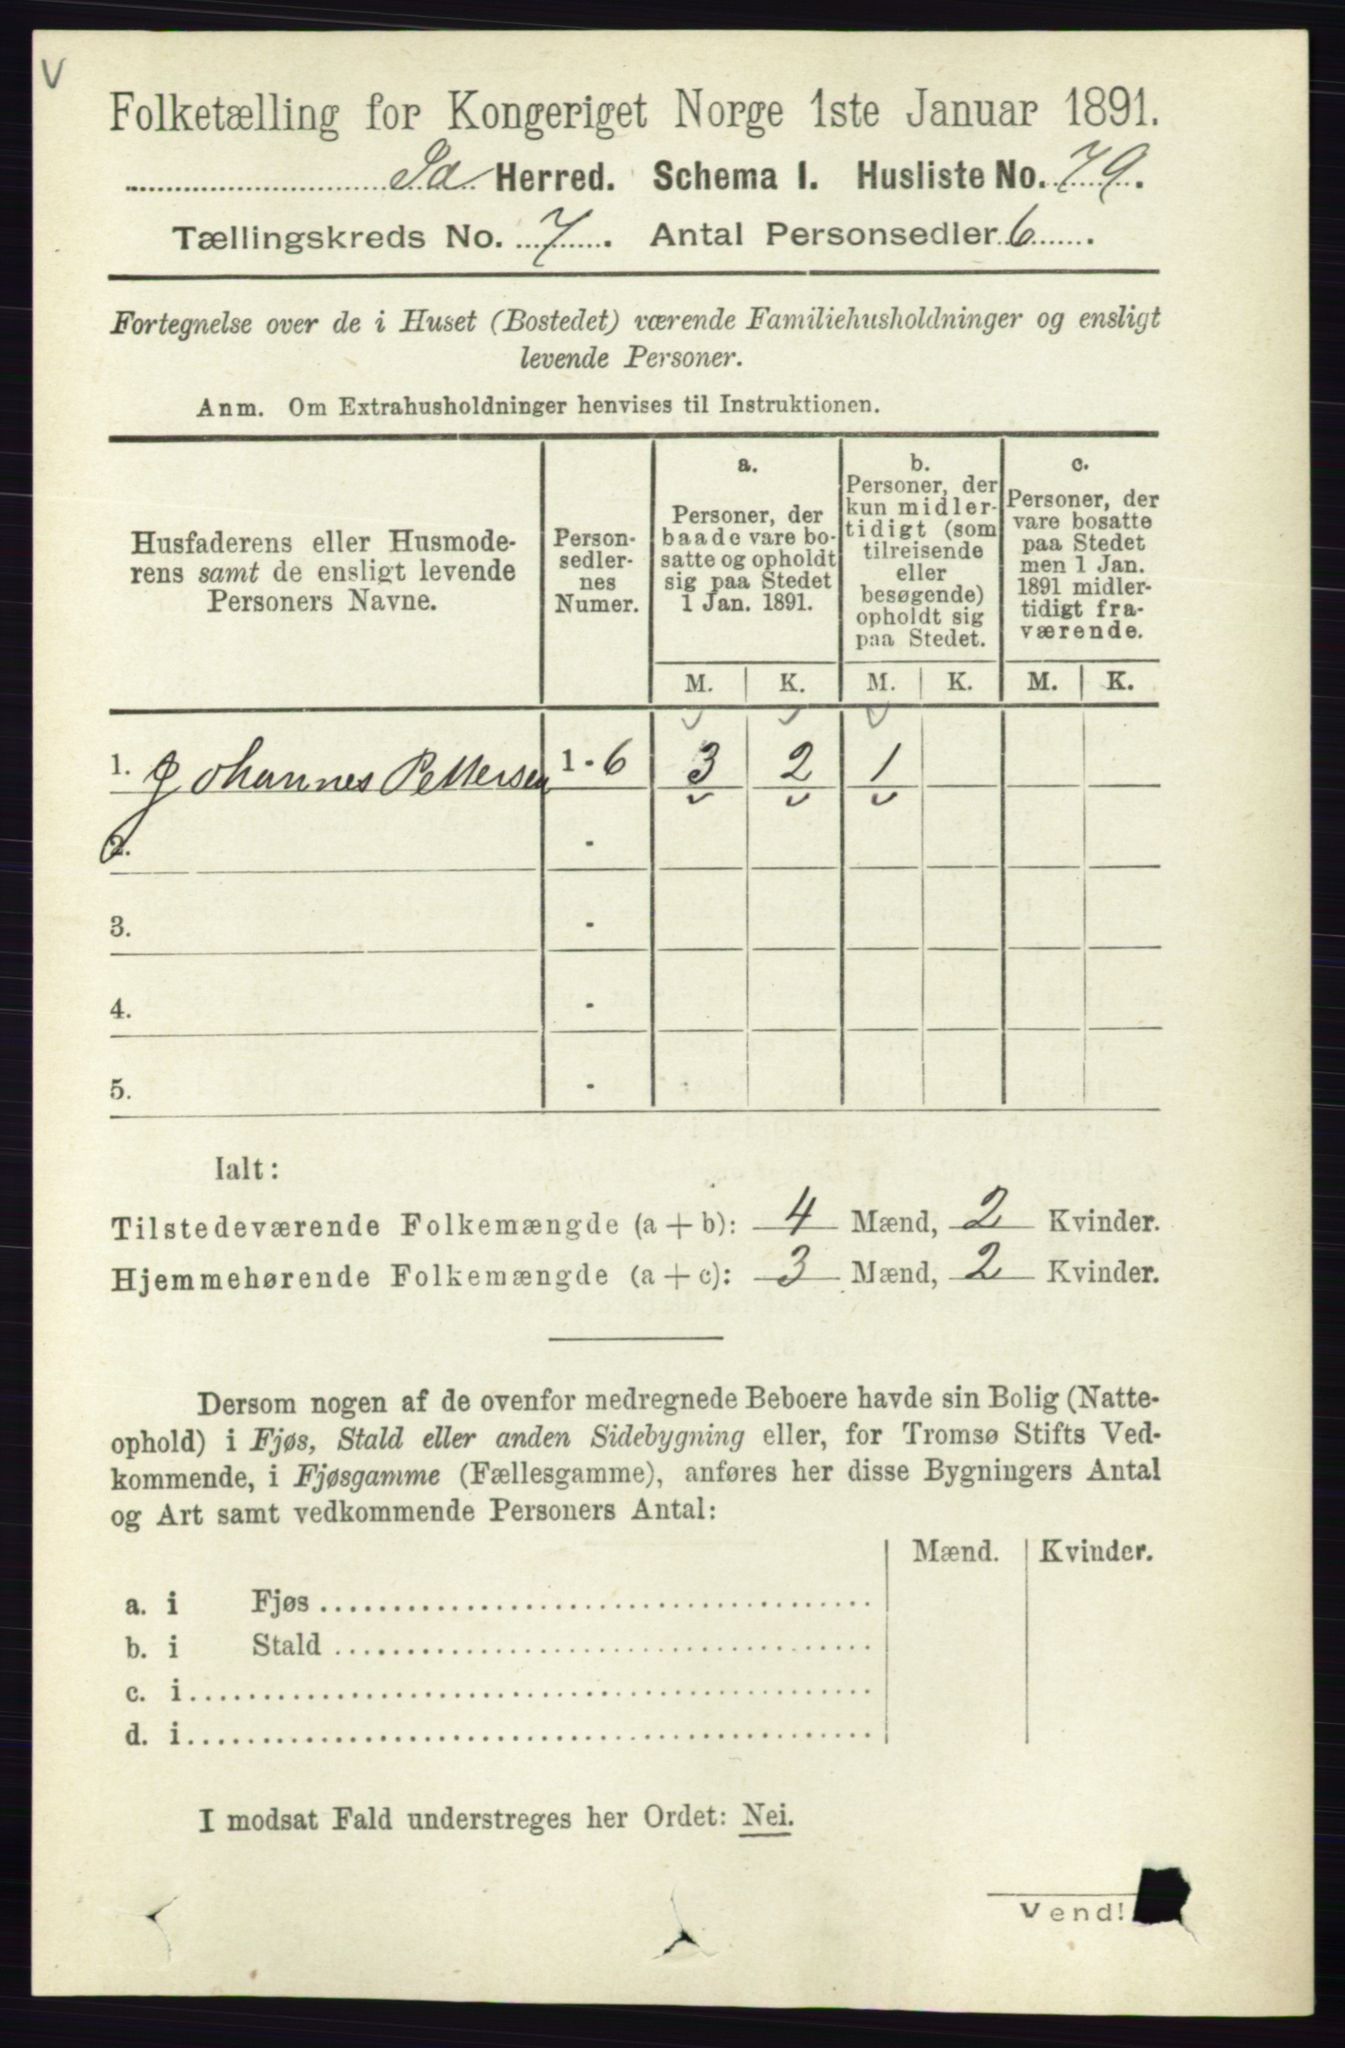 V
Folketælling for Kongeriget Norge 1ste Januar 1891.
Id Herred. Schema I. Husliste No. 79.
Tællingskreds No. 7. Antal Personsedler 6.
Fortegnelse over de i Huset (Bostedet) værende Familiehusholdninger og ensligt
levende Personer.
Anm. Om Extrahusholdninger henvises til Instruktionen.
Husfaderens eller Husmode-
rens samt de ensligt levende
Personers Navne.
Person-
sedler-
nes
Numer.
a.
Personer, der
baade vare bo-
satte og opholdt
sig paa Stedet
1 Jan. 1891.
b.
Personer, der
kun midler-
tidigt (som
tilreisende
eller
besøgende)
opholdt sig
paa Stedet.
c.
Personer, der
vare bosatte
paa Stedet
men 1 Jan.
1891 midler-
tidigt fra-
værende.
M. K. M. K. M. K.
1. Johannes Pettersen 1 - 6 3 2 1
2. -
3. -
4. -
5. -
Ialt:
Tilstedeværende Folkemængde (a + b): 4 Mænd, 2 Kvinder.
Hjemmehørende Folkemængde (a + c): 3 Mænd, 2 Kvinder.
Dersom nogen af de ovenfor medregnede Beboere havde sin Bolig (Natte-
ophold) i Fjøs, Stald eller anden Sidebygning eller, for Tromsø Stifts Ved-
kommende, i Fjøsgamme (Fællesgamme), anføres her disse Bygningers Antal
og Art samt vedkommende Personers Antal:
Mænd. Kvinder.
a. i Fjøs
b. i Stald
c. i
d. i
I modsat Fald understreges her Ordet: Nei.
Vend!